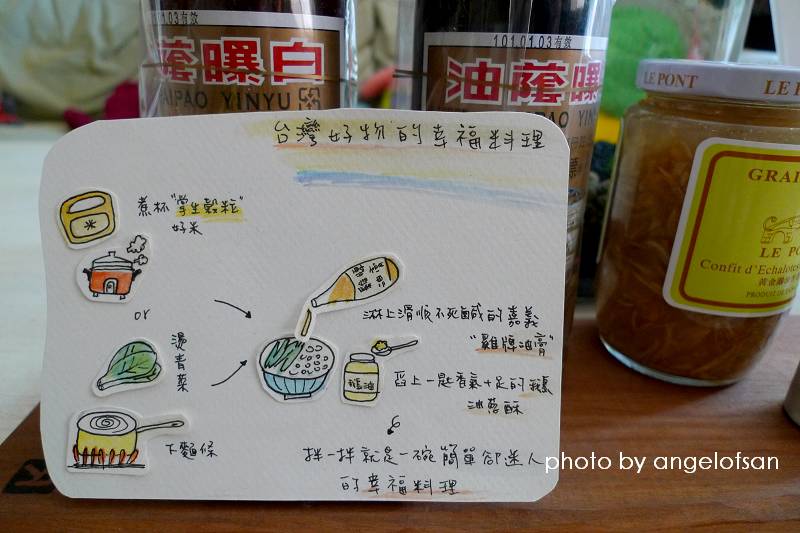 101.01.03有效
101.01.03有效
蔭曝白
油蔭曝
AIPAO YINYU
PAO YINYU
LE PONT
GRAI
LE PO
Confit d'Echalote
黃金
PRODUIT DE
台灣好物的幸福料理
煮杯"學生穀粒"
好米
or
燙青菜
下麵條
淋上滑順不死鹹的嘉義
"雞牌油膏"
舀上一匙香氣十足的鵝
油蔥酥
鵝油
拌一拌就是一碗簡單卻迷人
的幸福料理
photo by angelofsan